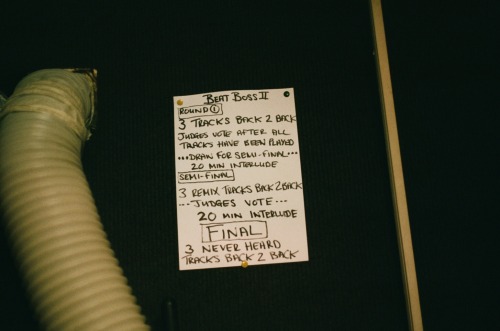 BEAT BOSS II
ROUND 1
3 TRACKS BACK 2 BACK
JUDGES VOTE AFTER ALL
TRACKS HAVE BEEN PLAYED
...DRAW FOR SEMI-FINAL...
20 MIN INTERLUDE
SEMI-FINAL
3 REMIX TRACKS BACK 2 BACK
---JUDGES VOTE---
20 MIN INTERLUDE
FINAL
3 NEVER HEARD
TRACKS BACK 2 BACK